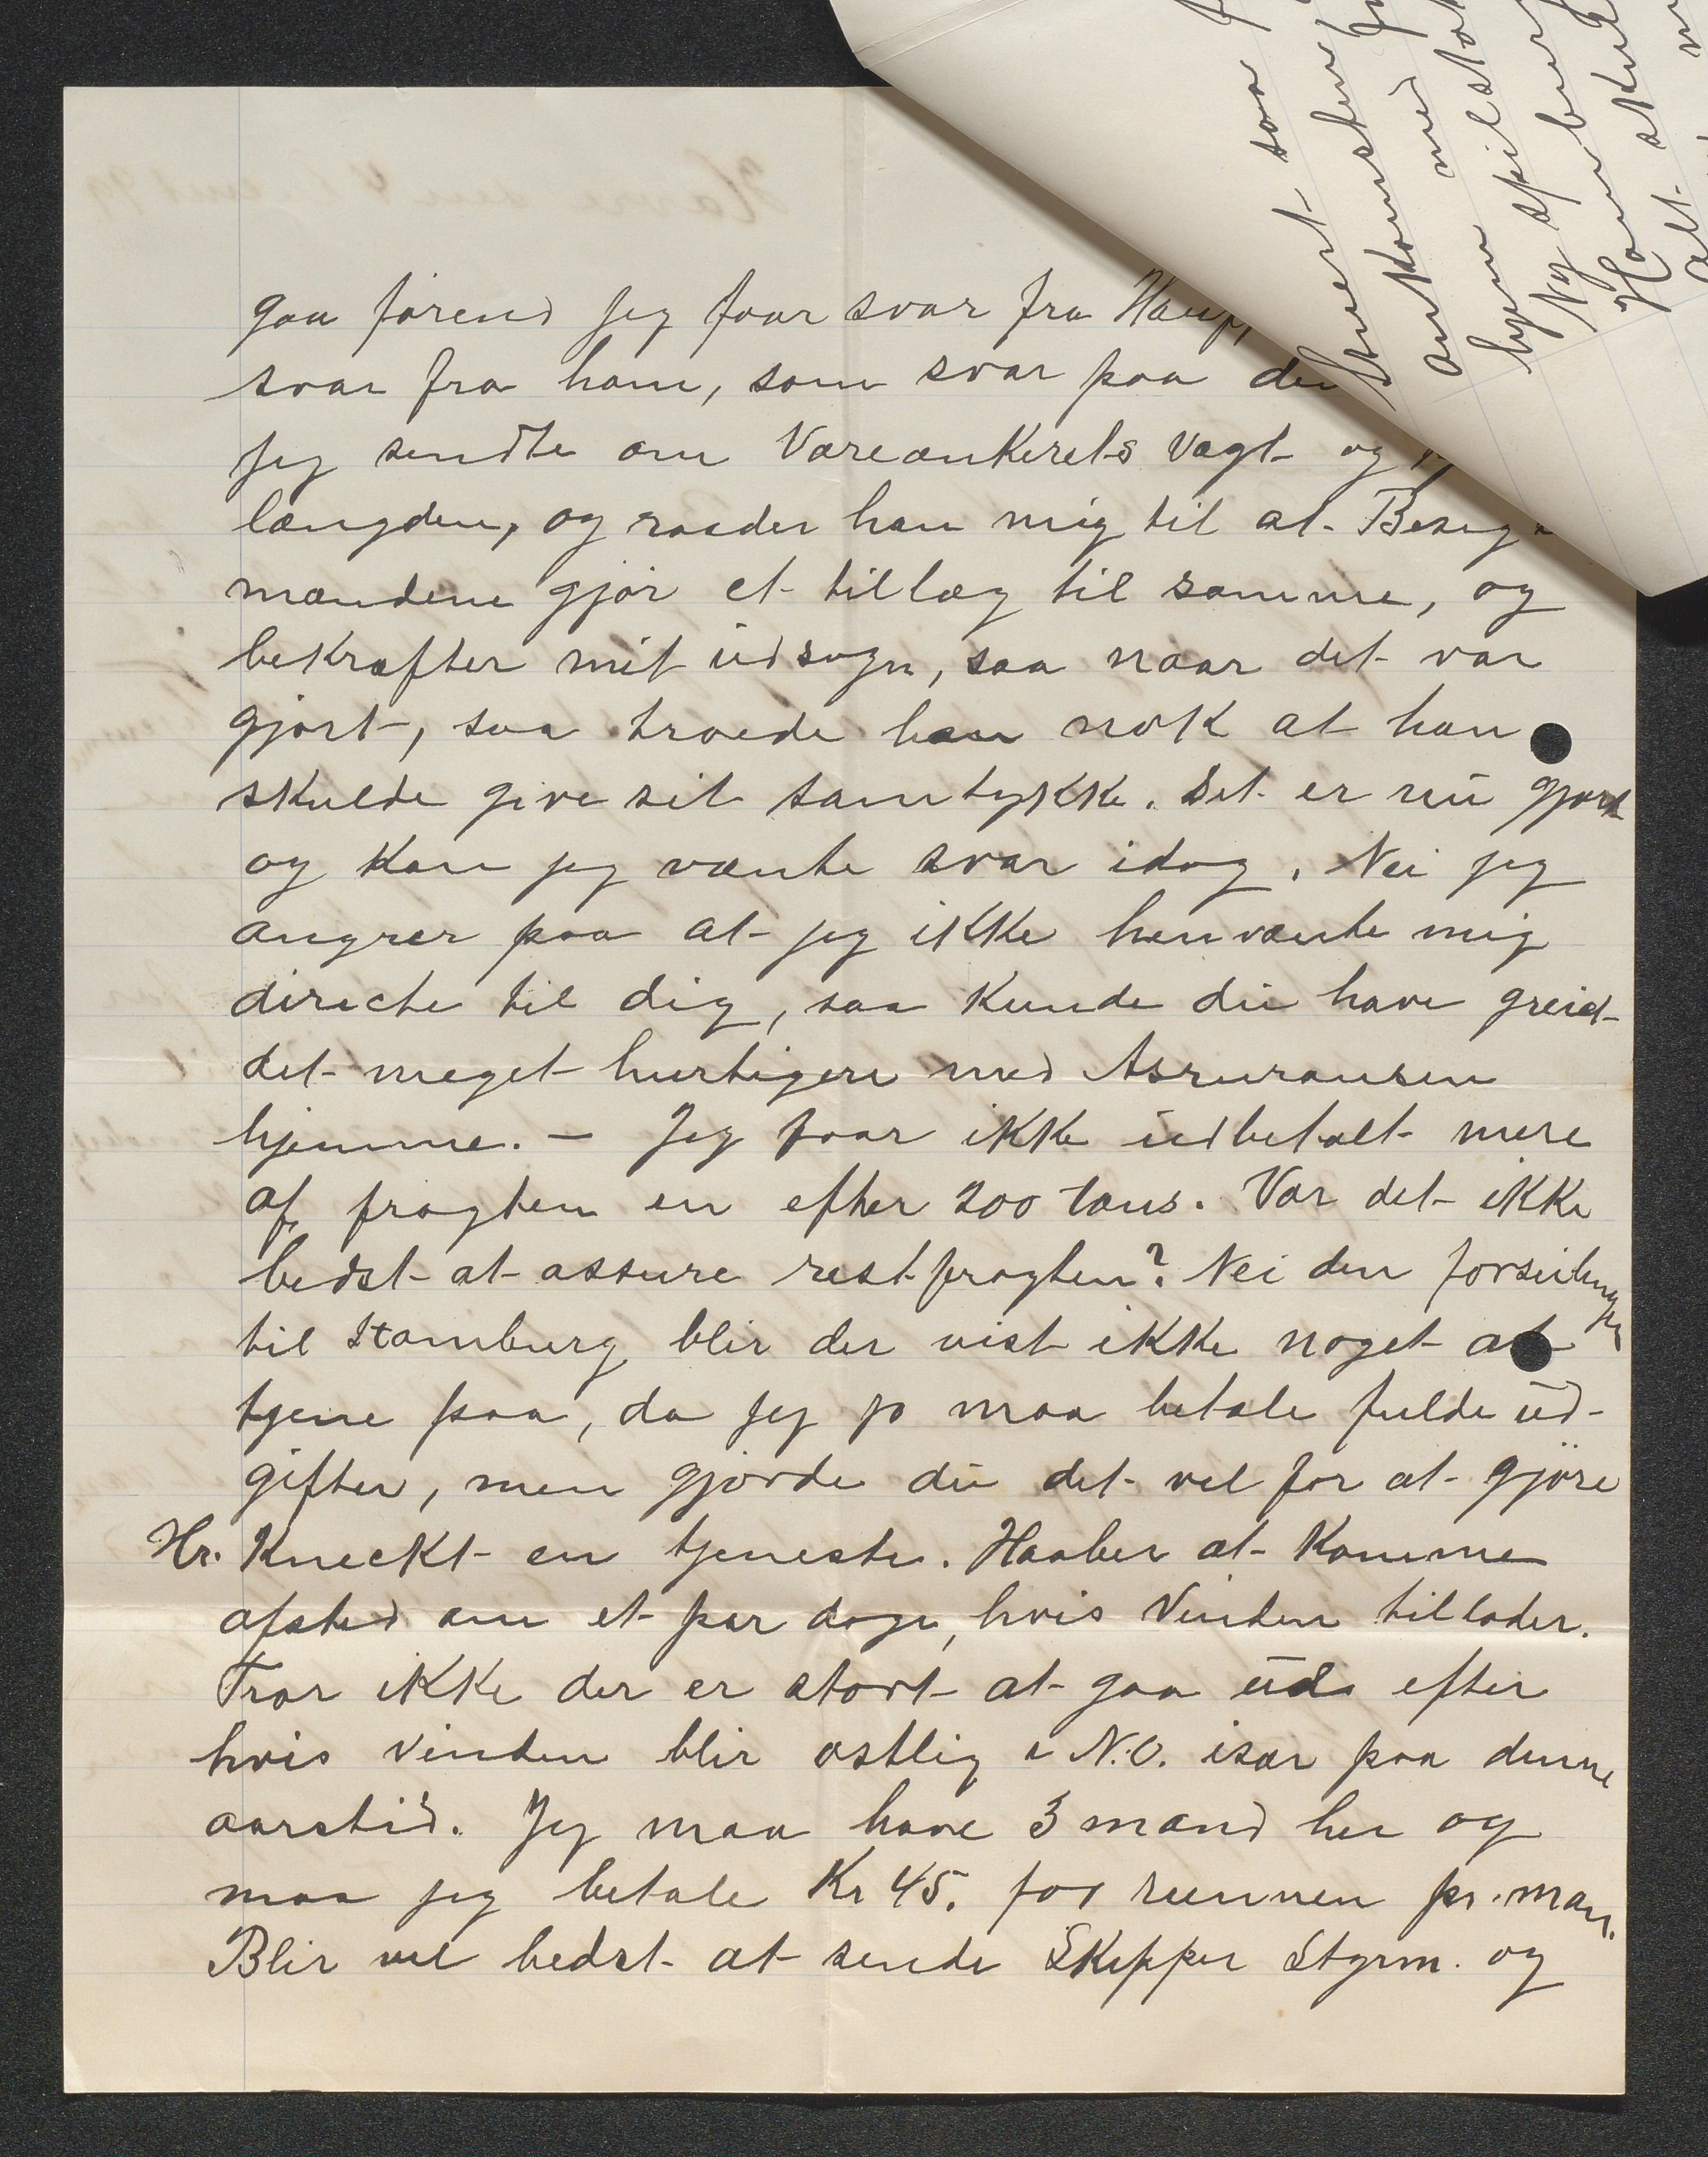 gaa förend jeg faar svar fra
svar fra ham, som svar paa
jeg sendte om Vareankerets Vægt og
længden, og raader han mig til at
mændene gjör et tillæg til samme, og
bekræfter mit udsagn, saa naar det var
gjort, saa troede han nok at han
skulde give sit samtykke. Det er nu gjort
og kan jeg vænte svar idag. Nei jeg
angrer paa at jeg ikke henvænte mig
directe til dig, saa kunde du have greid
det meget hurtigere med Assuransen
hjemme. - Jeg faar ikke udbetalt mere
af fragten en efter 200 tons. Var det ikke
bedst at assure restfragten? Nei den
til Hamburg blir der vist ikke noget at
tjene paa, da jeg jo maa betale fulde ud-
gifter, men gjorde du det vel for at gjöre
Hr. Kneckt en tjeneste. Haaber at komme
afsted om et par dage, hvis Vinden tillader.
Tror ikke der er stort at gaa ud efter
hvis vinden blir östlig a N.O. især paa denne
aarstid. Jeg maa have 3 mand her og
maa jeg betale Kr 45. for runnen pr. man.
Blir vel bedst at sende Skipper Styrm. og
saa
ankomst
med
hjem
Ny
skul
alt